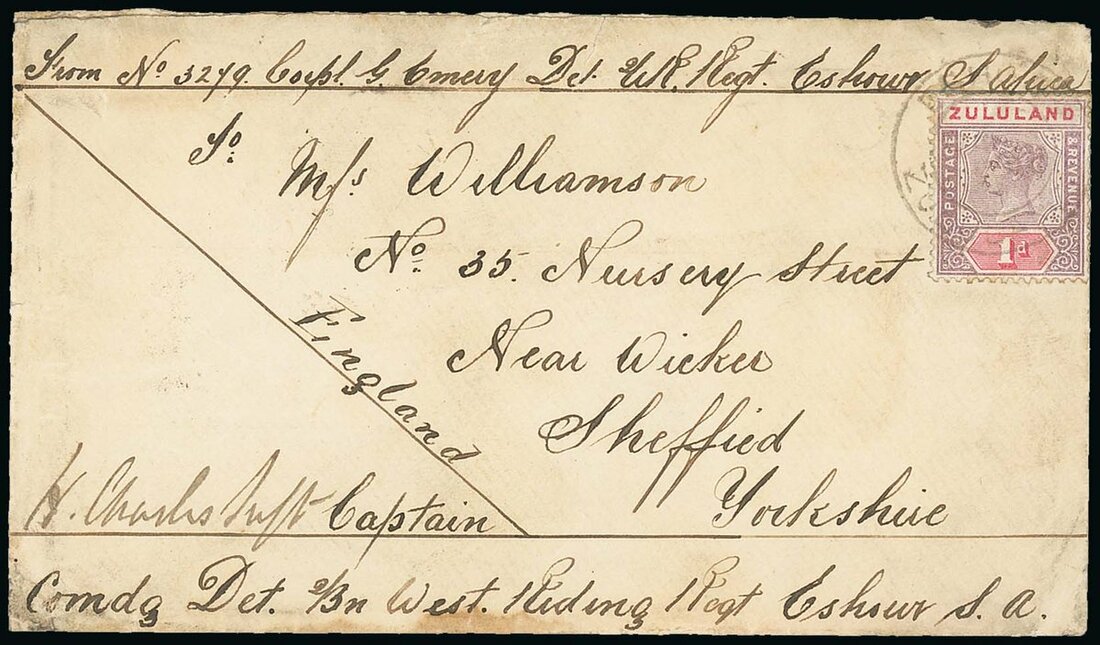 From No 3279. Corpl. G. Emery Det. W.R. Regt. Eshowe S. Africa
ZULULAND
POSTAGE
& REVENUE
1d
To:
Mrs Williamson
No. 35. Nursery Street
Near Wicker
Sheffied
Yorkshire
England
H. Charles Captain
Comdg Det. 2/Bn West. Riding Regt Eshowe S. A.